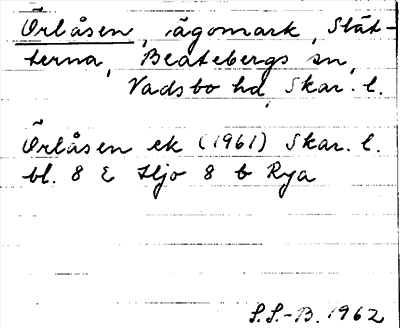 Örlåsen, ägomark, Stät-
terna, Beatebergs sn,
Vadsbo hd, Skar. l.
Örlåsen ek (1961) Skar. l.
bl. 8 E Hjo 8 b Rya
S.S.-B. 1962